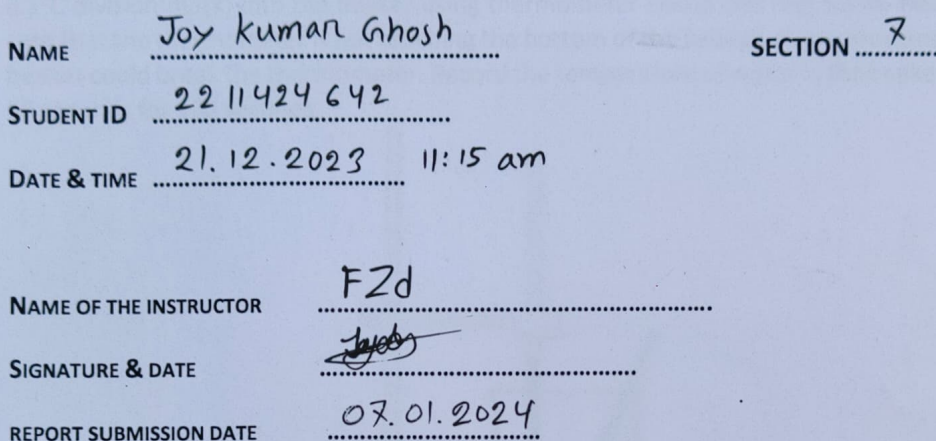 NAME Joy Kumar Ghosh SECTION 7
STUDENT ID 2211424642
DATE & TIME 21.12.2023 11:15 am
NAME OF THE INSTRUCTOR FZd
SIGNATURE & DATE
REPORT SUBMISSION DATE 07.01.2024